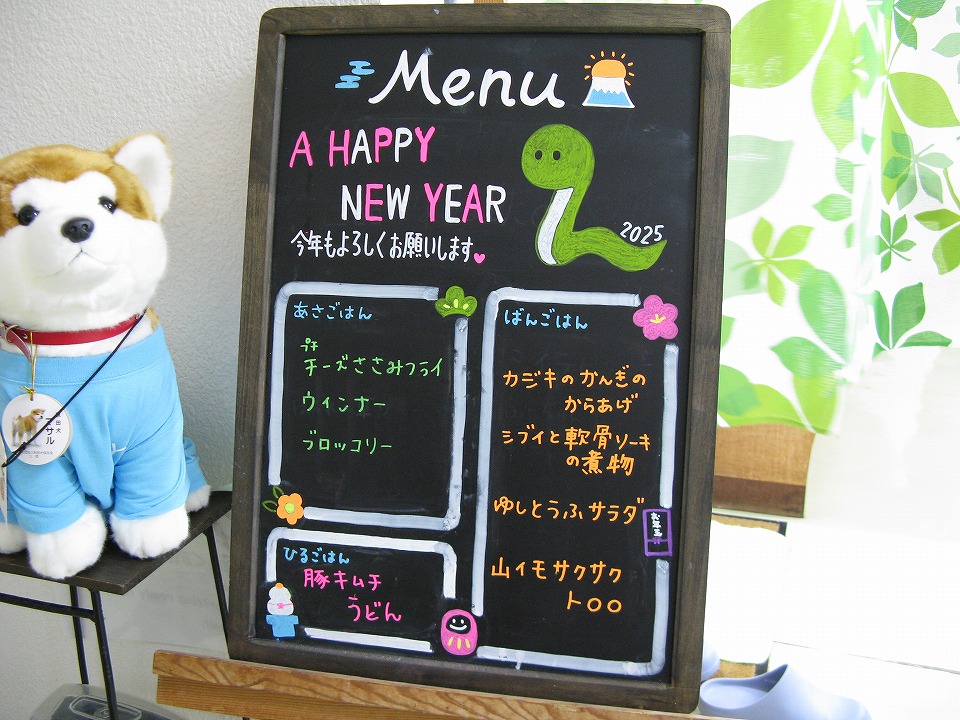 Menu
A HAPPY
NEW YEAR
今年もよろしくお願いします
2025
あさごはん
プチ
チーズささみフライ
ウィンナー
ブロッコリー
ひるごはん
豚キムチ
うどん
ばんごはん
カジキのかんぎの
からあげ
シブイと軟骨ソーキ
の煮物
ゆしとうふサラダ
お年玉
山イモサクサク
トロロ
田犬
マサル